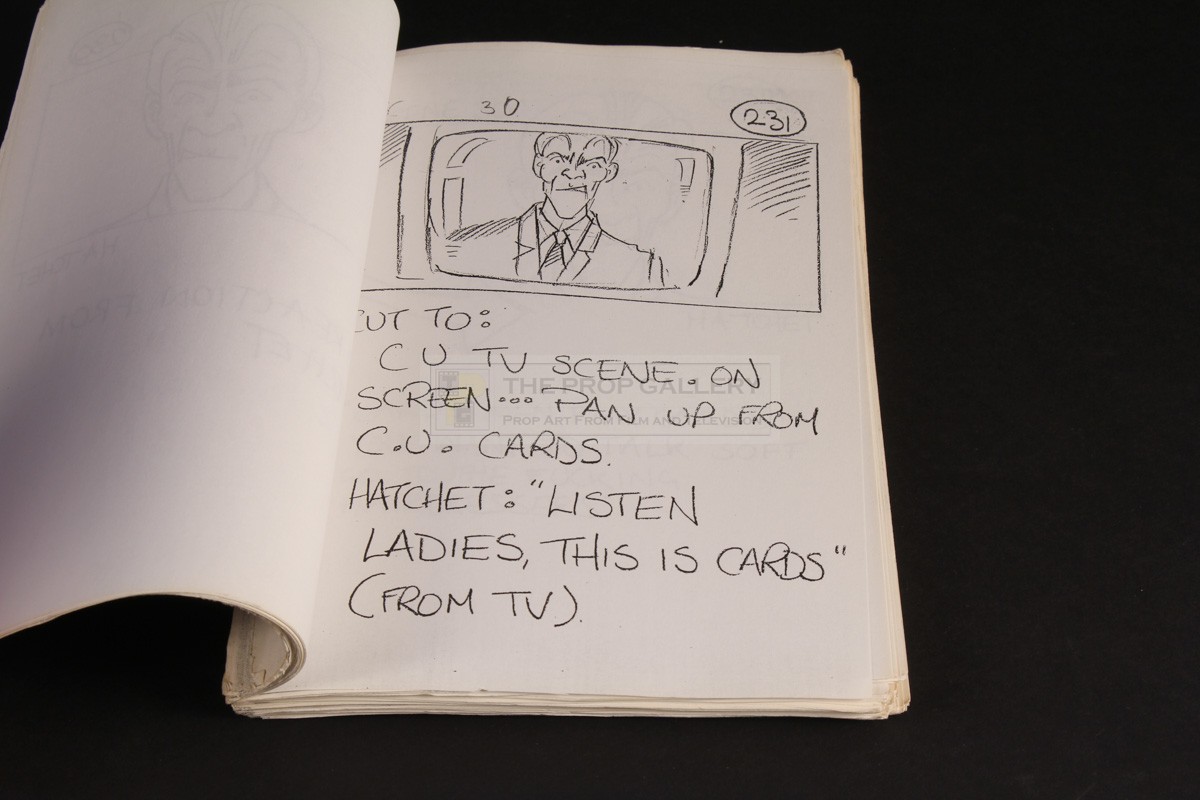 30
231
CUT TO:
CU TV SCENE. ON
SCREEN... PAN UP FROM
C.U. CARDS.
HATCHET: "LISTEN
LADIES, THIS IS CARDS"
(FROM TV).
THE PROP GALLERY
PROP ART FROM FILM AND TELEVISION